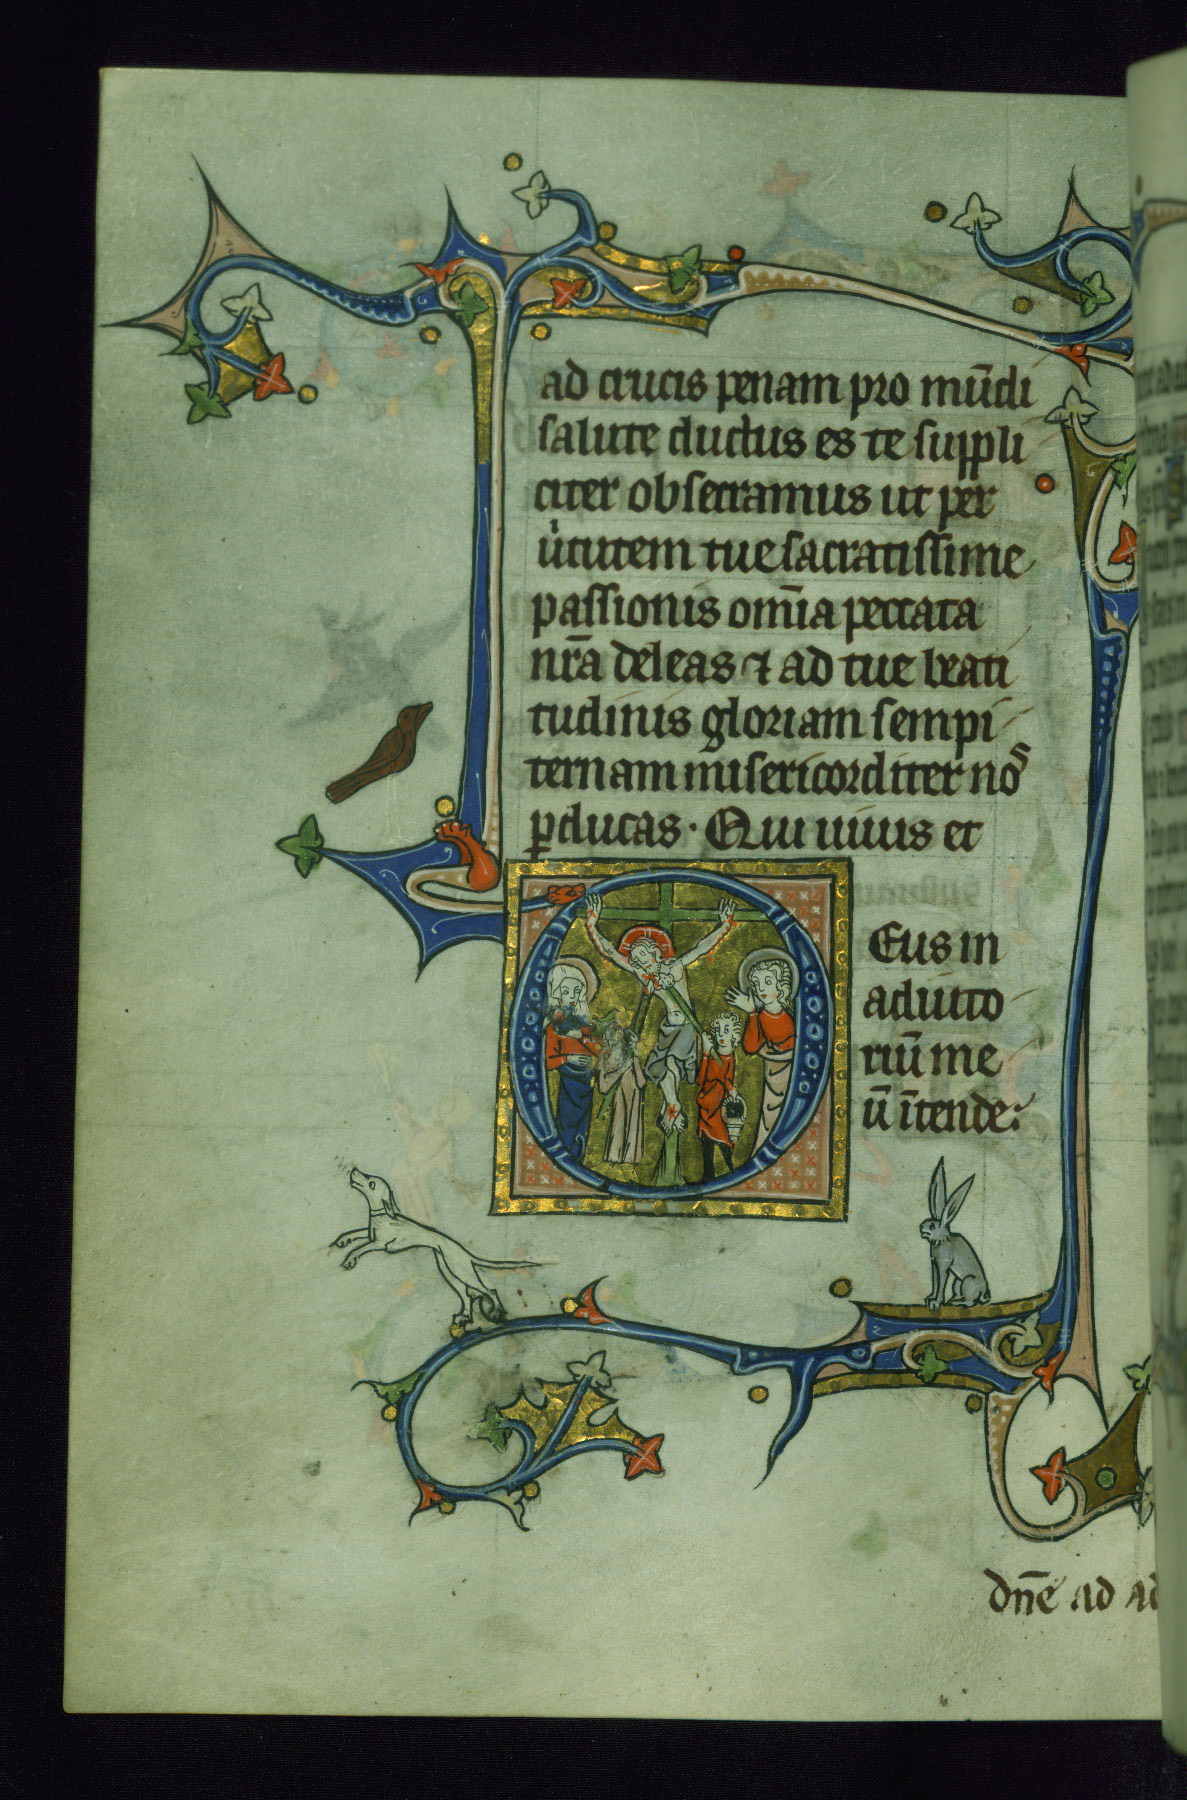 ad crucis penam pro mūdi
salute ductus es te suppli
citer obsecramus ut per
uͥtutem tue sacratissime
passionis om̄ia peccata
nr̄a deleas ⁊ ad tue beati
tudinis gloriam sempi
ternam misericorditer noˢ
ꝑducas· Qui uiuis et
Deus in
adiuto
riū me
ū ītende.
dn̄e ad ad